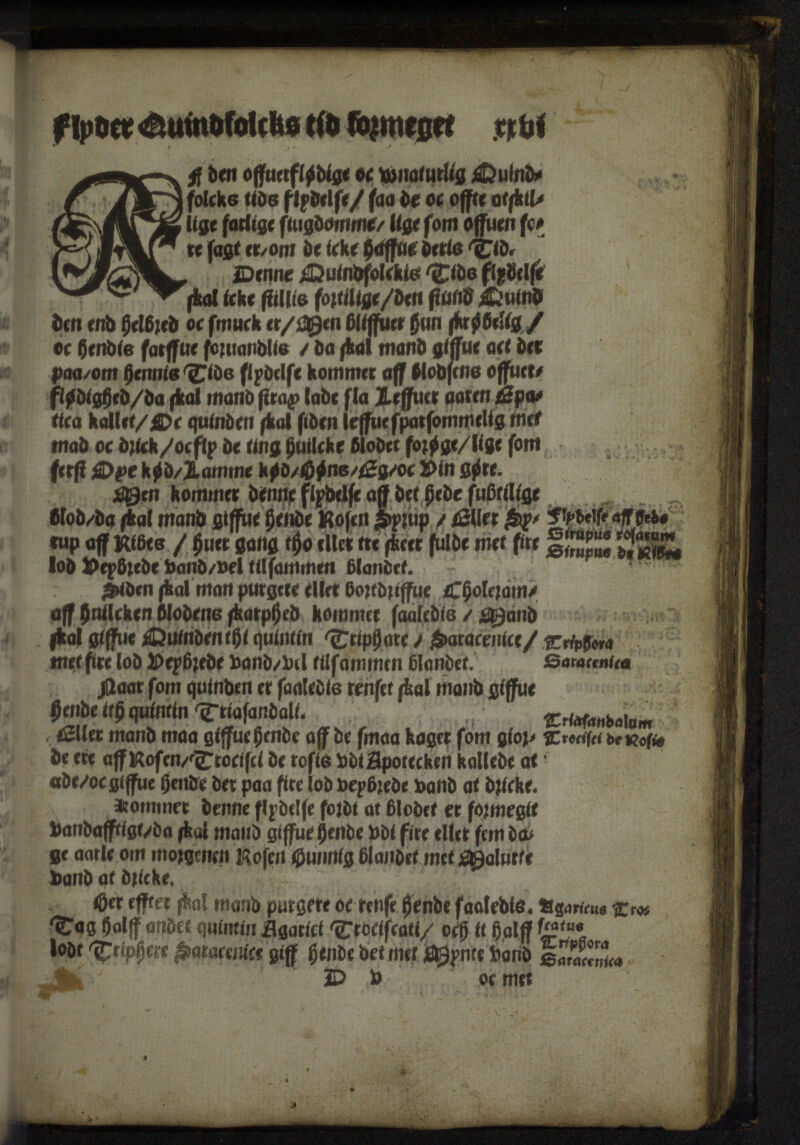 Flyder Quindfolckis tid formeget xxvi
Aff den offuerflødige oc vnaturlig Quind⸗
folcks tids flydelse/ saa de oc offte atskil⸗
lige farlige siugdomme/ lige som offuen fo⸗
re sagt er/om de icke haffue deris Tid.
Denne Quindfolckis Tids flydelse
skal icke stillis fortilige/den stund Quind
den end helbred oc smuck er/Men bliffuer hun skrøbelig/
oc hendis farffue foruandlis / da skal mand giffue act der
paa/om hennis Tids flydelse kommer aff Blodsens offuer⸗
flødighed/da skal mand strax lade sla Leffuer aaren Epa⸗
tica kallet/Oc quinden skal siden leffue sparsommelig met
mad oc drick/oc fly de ting huilcke Blodet forøge/lige som
ferst Oxe kød/Lamme kød/Høns/Eg/oc Vin gøre.
Men kommer denne flydelse aff det hede subtilige
Blod/da skal mand giffue hende Rosen Syrup / Eller Sy⸗
rup aff Ribes / huer gang tho eller tre skeer fulde met fire
lod Veybrede vand/vel tilsammen blandet.
Siden skal man purgere eller bortdriffue Choleram/
aff huilcken Blodens skarphed kommer saaledis / Mand
skal giffue Quinden thi quintin Triphare / Saracenice/
met fire lod Veybrede vand/vel tilsammen blandet.
Naar som quinden er saaledis renset skal mand giffue
hende ith quintin Triasandali.
Eller mand maa giffue hende aff de smaa kager som gior⸗
de ere aff Rosen/Trocisci de rosis vdi Apotecken kallede at
æde/oc giffue hende der paa fire lod veybrede vand at dricke.
Kommer denne flydelse fordi at Blodet er formegit
Vandafftigt/da skal mand giffue hende vdi fire eller fem da⸗
ge aarle om morgenen Rosen Hunnig blandet met Malurte
vand at dricke.
Her effter skal mand purgere oc rense hende saaledis.
Tag halff andet quintin Agarici Trociscati/ och it halff
lodt Triphere Saracenice giff hende det met Mynte vand
D v oc met
Flydelse aff hede
Sirupus rosarum
Sirupus de Ribes
Triphora
Saracenica
Triasandalum
Trocisci de Rosis
Agaricus Tro⸗
scatus
Triphora
Saracenica